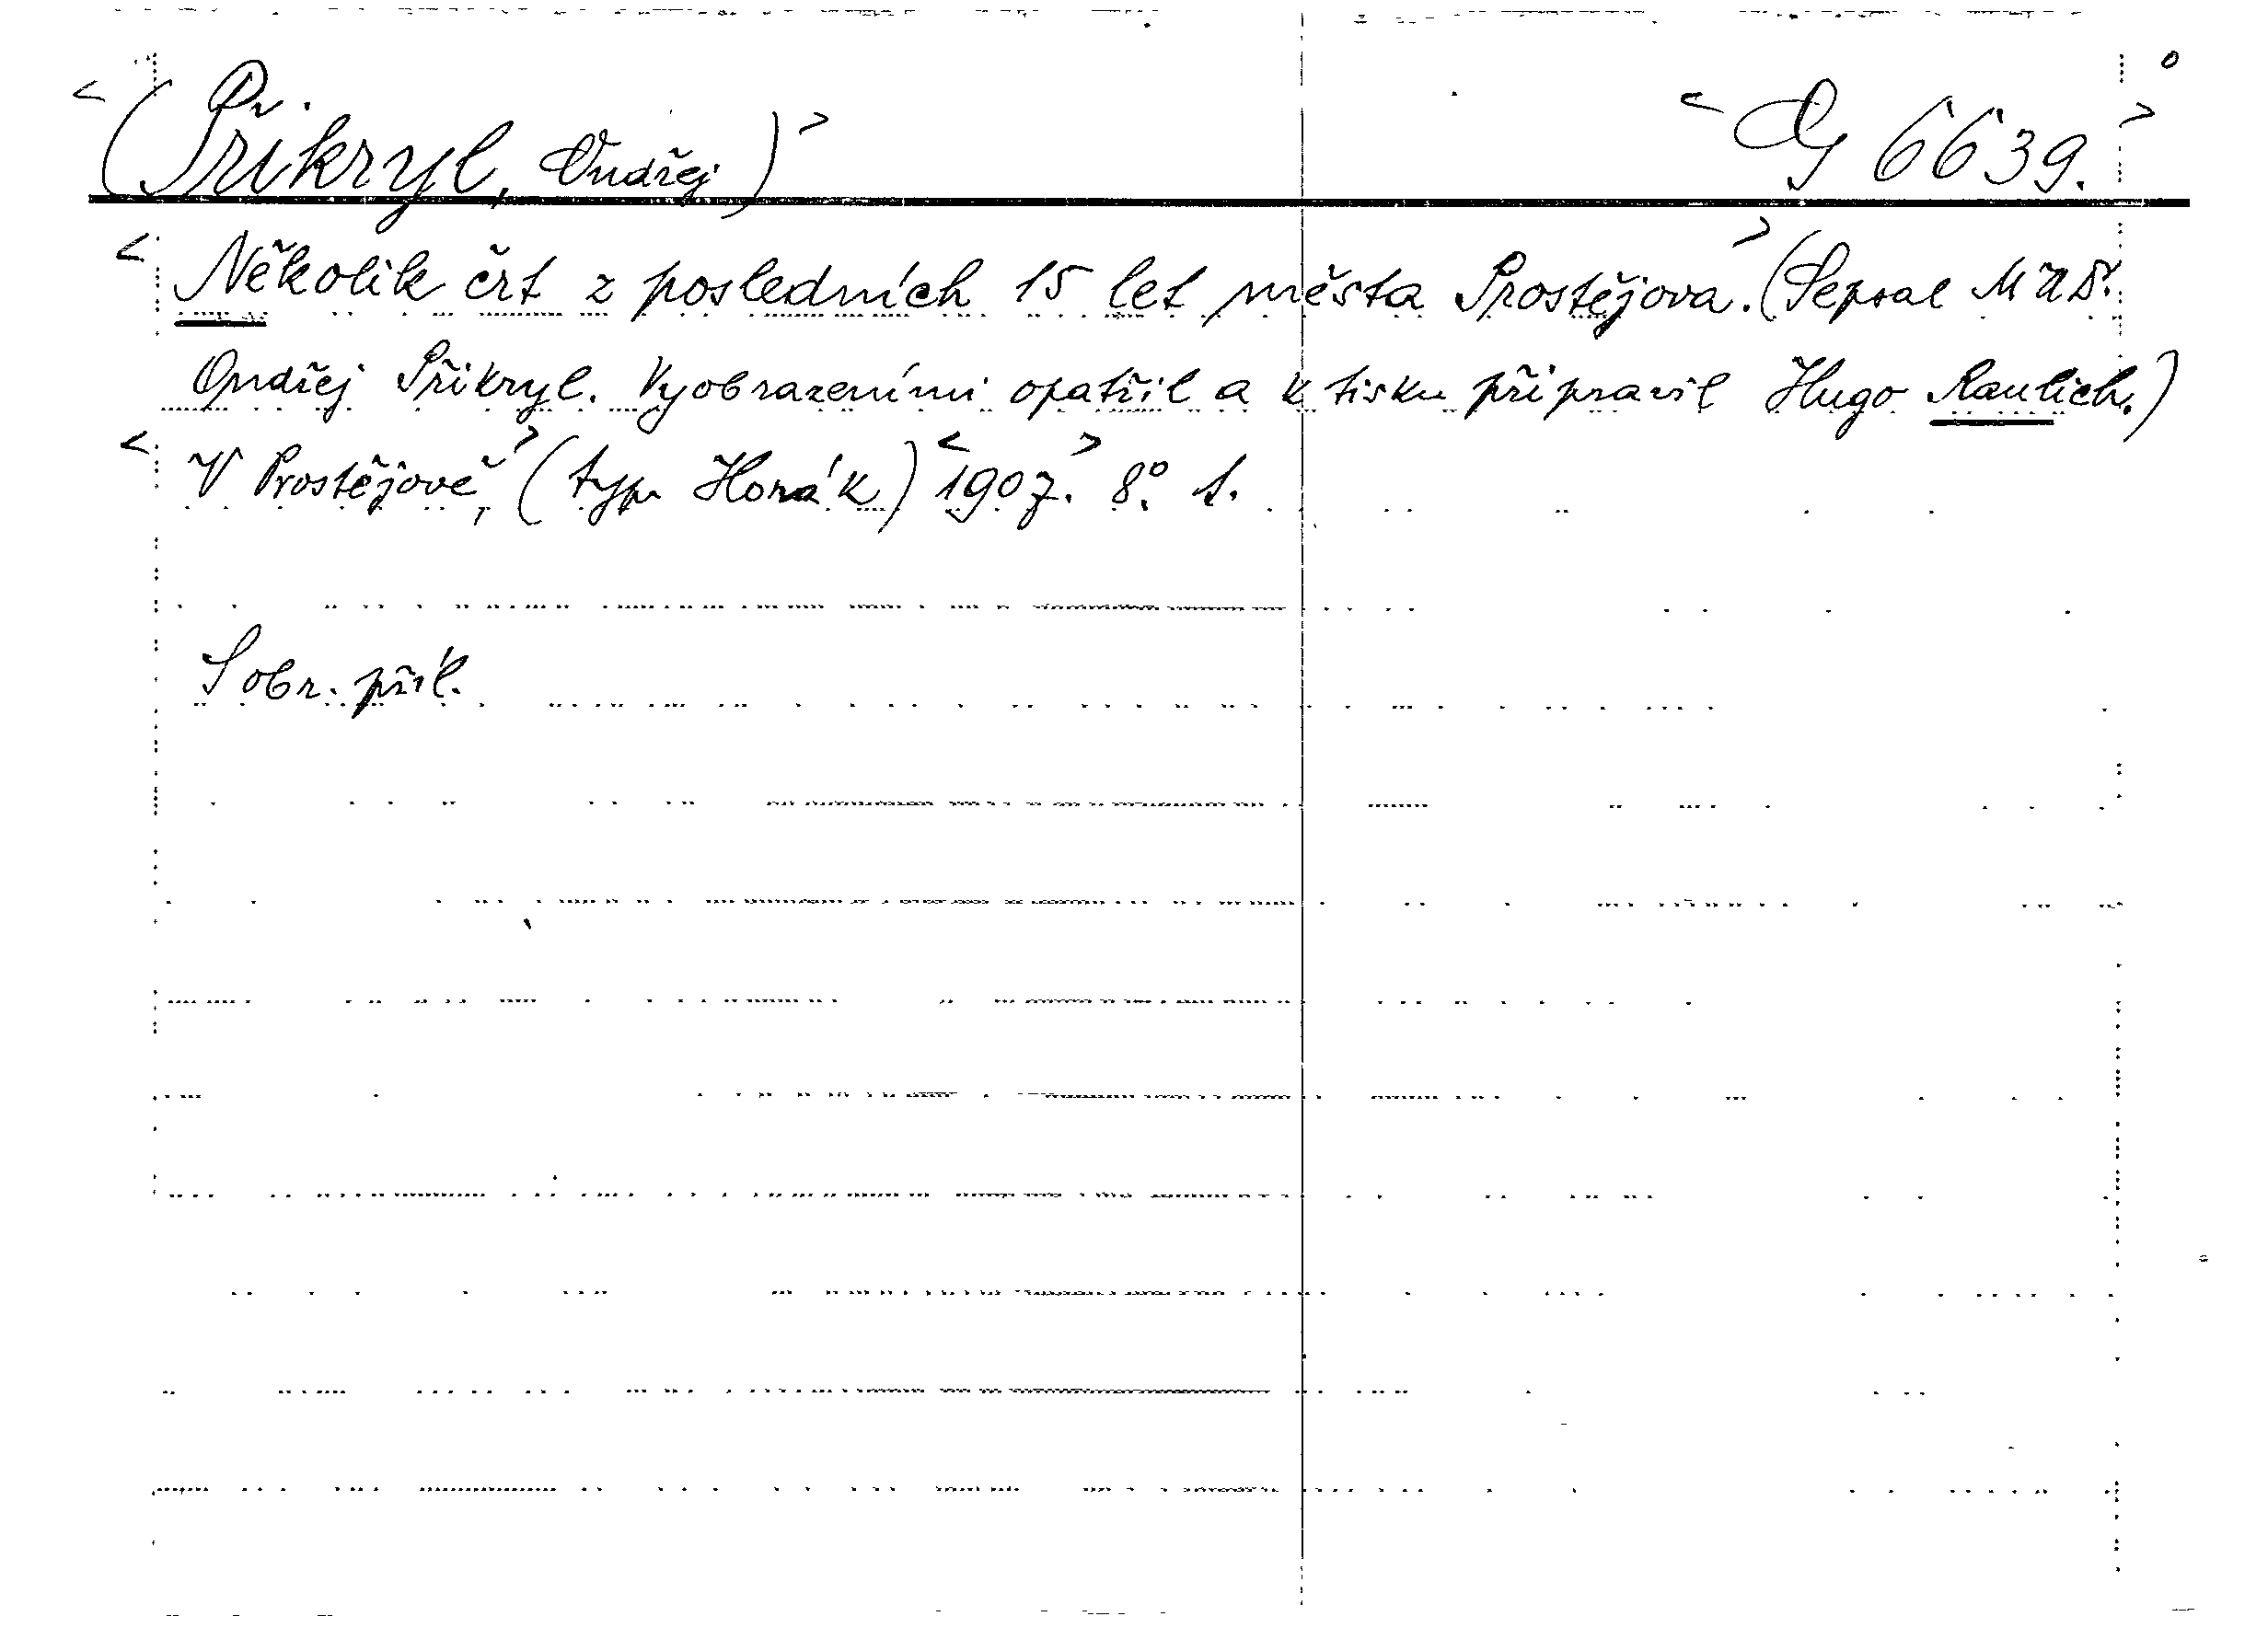 Pr.
<(Přikryl, Ondřej)> <G 6639.>
<Několik črt z posledních 15 let města Prostějova.> (Sepsal MUDr.
Ondřej Přikryl. Vyobrazeními opatřil a k tisku připravil Hugo Raulich.)
<V Prostějově,> (typ. Horák) <1907.> 8°. 1.
S obr. příl.